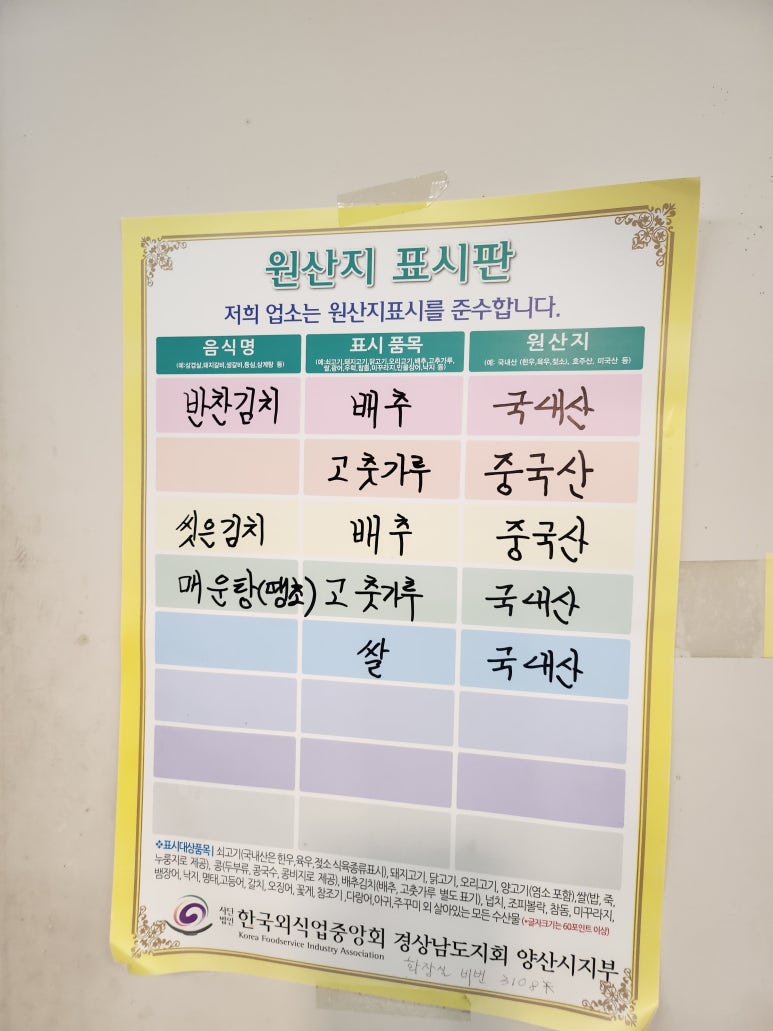 원산지 표시판
저희 업소는 원산지표시를 준수합니다.
음식명 표시 품목 원산지
(예:삼겹살,돼지갈비,생갈비,등심,삼계탕 등) (예:쇠고기,돼지고기,닭고기,오리고기,배추,고추가루, (예: 국내산 (한우,육우,젖소), 호주산, 미국산 등)
쌀,광어,우럭,참돔,미꾸라지,민물장어,낙지 등)
반찬김치 배추 국내산
고춧가루 중국산
씻은김치 배추 중국산
매운탕(땡초) 고춧가루 국내산
쌀 국내산
❖표시대상품목 | 쇠고기(국내산은 한우,육우,젖소 식육종류표시), 돼지고기, 닭고기, 오리고기, 양고기(염소 포함),쌀(밥, 죽,
누룽지로 제공), 콩(두부류, 콩국수, 콩비지로 제공), 배추김치(배추, 고춧가루 별도 표기), 넙치, 조피볼락, 참돔, 미꾸라지,
뱀장어, 낙지, 명태,고등어, 갈치, 오징어, 꽃게, 참조기,다랑어,아귀,주꾸미 외 살아있는 모든 수산물 (*글자크기는 60포인트 이상)
사단법인 한국외식업중앙회 경상남도지회 양산시지부
Korea Foodservice Industry Association
화장실 비번 3108*